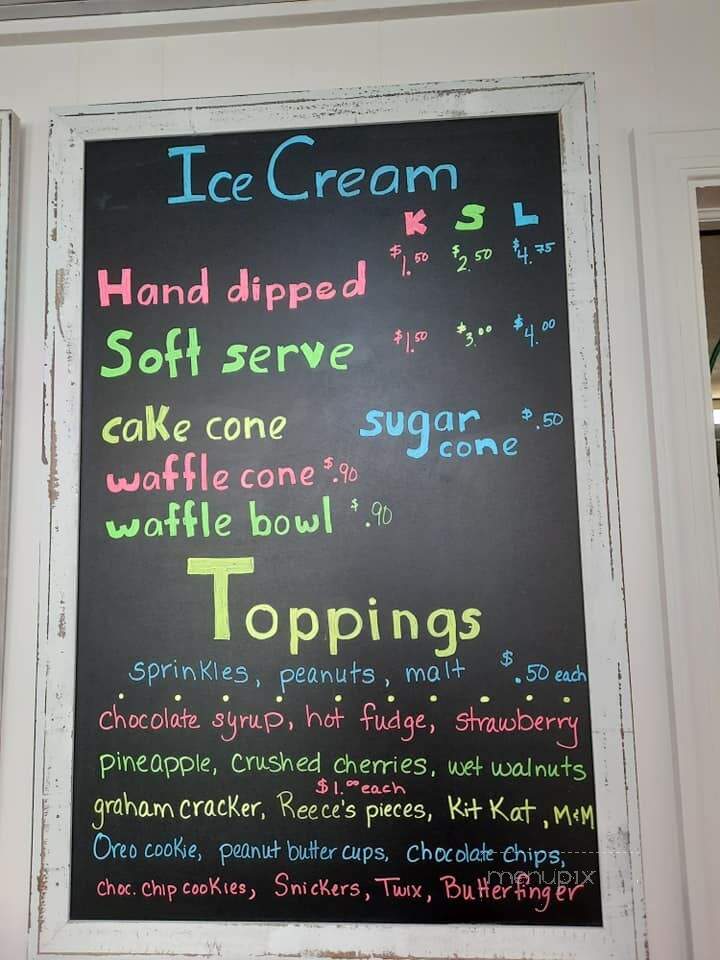 Ice Cream
K S L
Hand dipped $1.50 $2.50 $4.75
Soft serve $1.50 $3.00 $4.00
cake cone sugar cone $.50
waffle cone $.90
waffle bowl $.90
Toppings
sprinkles, peanuts, malt $.50 each
chocolate syrup, hot fudge, strawberry
pineapple, crushed cherries, wet walnuts
$1.00 each
graham cracker, Reece's pieces, Kit Kat, M&M
Oreo cookie, peanut butter cups, chocolate chips,
choc. chip cookies, Snickers, Twix, Butterfinger
menupix